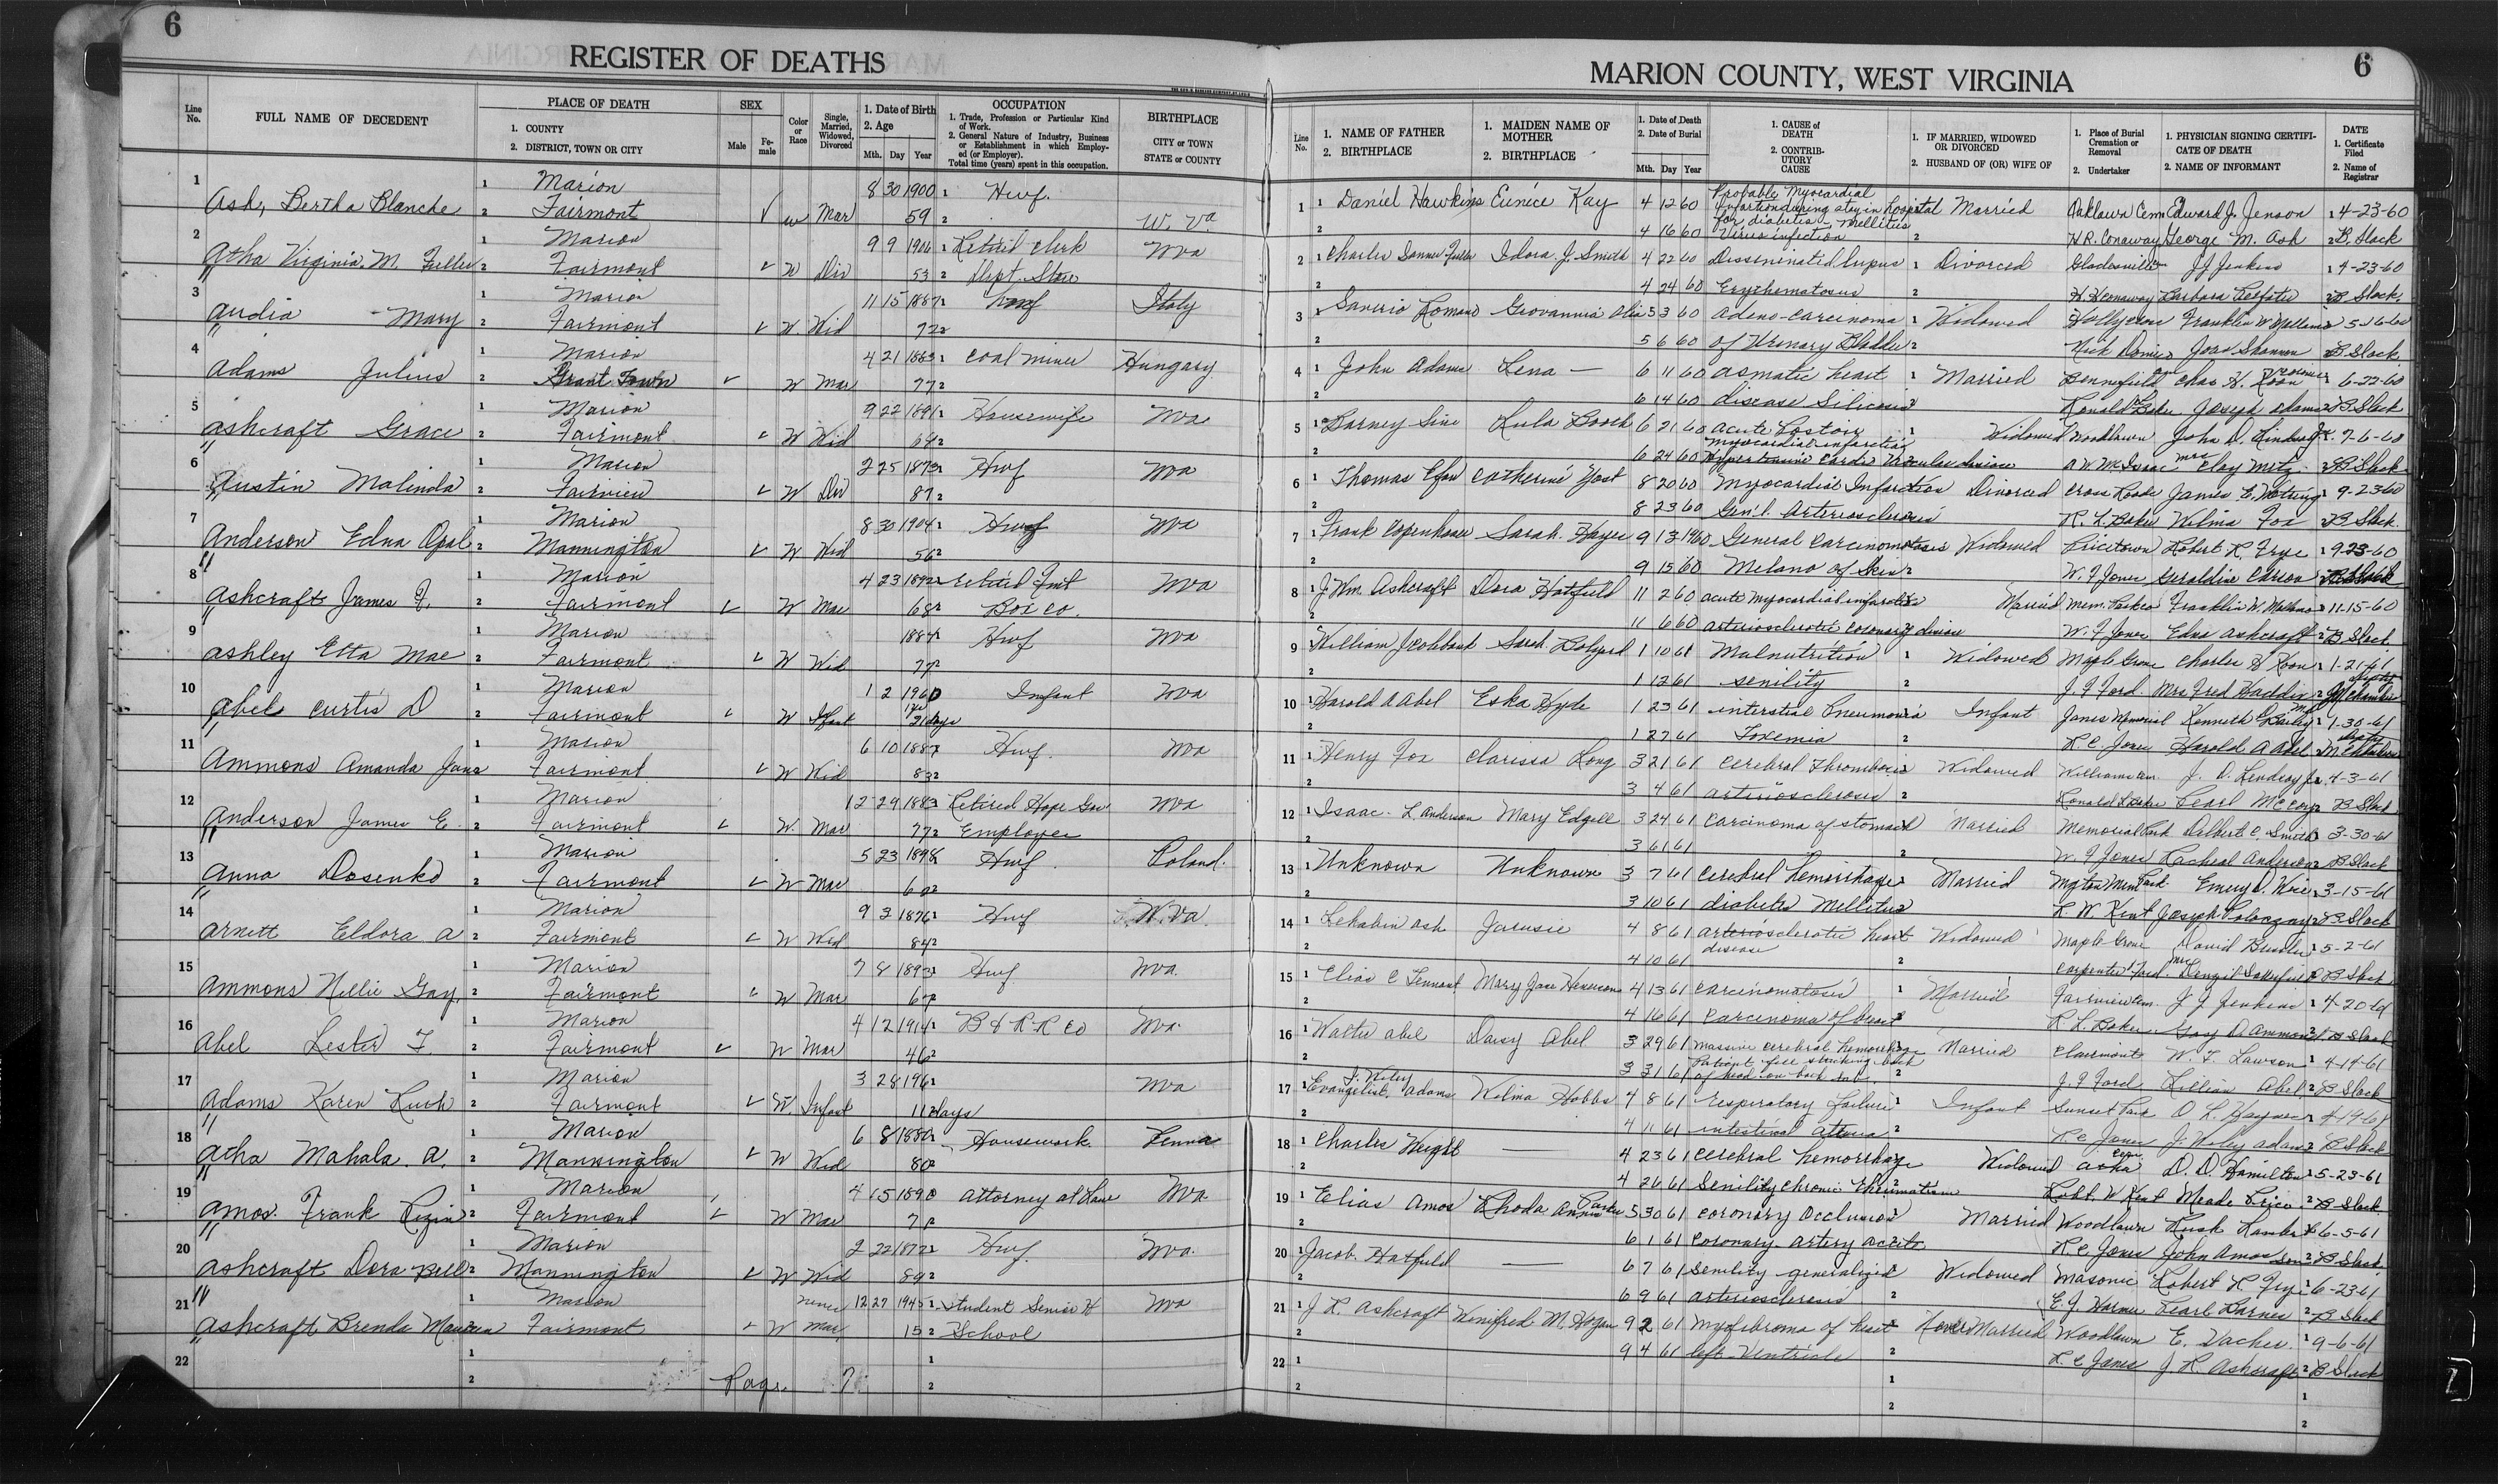 6
REGISTER OF DEATHS
Line No. FULL NAME OF DECEDENT PLACE OF DEATH 1. COUNTY 2. DISTRICT, TOWN OR CITY SEX Male Female Color or Race Single, Married, Widowed, Divorced 1. Date of Birth 2. Age Mth. Day Year OCCUPATION 1. Trade, Profession or Particular Kind of Work. 2. General Nature of Industry, Business or Establishment in which Employed (or Employer). Total time (years) spent in this occupation. BIRTHPLACE CITY or TOWN STATE or COUNTY
1 Ash, Bertha Blanche 1 Marion 8 30 1900 1 Hwf.
2 Fairmont ✓ W Mar 59 2 W. Va.
2 Atha Virginia M. Fuller 1 Marion 9 9 1906 1 Retired Clerk Wva
2 Fairmont ✓ W Div 53 2 Dept. Store
3 Audia Mary 1 Marion 11 15 1887 1 Hwf Italy
2 Fairmont ✓ W Wid 72 2
4 Adams Julius 1 Marion 4 21 1883 1 Coal miner Hungary
2 Grant Town ✓ W Mar 77 2
5 Ashcraft Grace 1 Marion 9 22 1896 1 Housewife Wva
2 Fairmont ✓ W Wid 64 2
6 Austin Malinda 1 Marion 2 25 1873 1 Hwf Wva
2 Fairview ✓ W Div 87 2
7 Anderson Edna Opal 1 Marion 8 30 1904 1 Hwf Wva
2 Mannington ✓ W Wid 56 2
8 Ashcraft James F. 1 Marion 4 23 1892 1 retired Fmt Wva
2 Fairmont ✓ W Mar 68 2 Box Co.
9 Ashley Etta Mae 1 Marion 1884 1 Hwf Wva
2 Fairmont ✓ W Wid 77 2
10 Abel Curtis D 1 Marion 1 2 1960 Infant Wva
2 Fairmont ✓ W Infant 1 yr 21 days
11 Ammons Amanda Jane 1 Marion 6 10 1887 Hwf. Wva
2 Fairmont ✓ W Wid 83 2
12 Anderson James E. 1 Marion 12 29 1883 Retired Hope Gas Wva
2 Fairmont ✓ W. Mar 77 2 Employee
13 Anna Dosenko 1 Marion 5 23 1898 Hwf. Poland.
2 Fairmont ✓ W Mar 62
14 Arnett Eldora A 1 Marion 9 3 1876 1 Hwf W.Va.
2 Fairmont ✓ W Wid 84 2
15 Ammons Nellie Gay, 1 Marion 7 8 1893 1 Hwf Wva.
2 Fairmont ✓ W Mar 67 2
16 Abel Lester F. 1 Marion 4 12 1914 1 B & R R Co Wva.
2 Fairmont ✓ W Mar 46 2
17 Adams Karen Ruth 1 Marion 3 28 1961 Wva
2 Fairmont ✓ W Infant 11 days
18 Atha Mahala. A. 1 Marion 6 8 1880 1 Housework Penna
2 Mannington ✓ W Wid 80 2
19 Amos. Frank Rezin 1 Marion 4 15 1890 Attorney at Law Wva.
2 Fairmont ✓ W Mar 71 2
20 Ashcraft Dora Bell 1 Marion 2 22 1872 1 Hwf. Wva.
2 Mannington ✓ W Wid 89 2
21 Ashcraft Brenda Maureen 1 Marion never 12 27 1945 1 Student Senior H Wva
2 Fairmont ✓ W Mar, 15 2 School
22 1 1
2 Page 7 2
MARION COUNTY, WEST VIRGINIA
6
Line No. 1. NAME OF FATHER 2. BIRTHPLACE 1. MAIDEN NAME OF MOTHER 2. BIRTHPLACE 1. Date of Death 2. Date of Burial Mth. Day Year 1. CAUSE of DEATH 2. CONTRIBUTORY CAUSE 1. IF MARRIED, WIDOWED OR DIVORCED 2. HUSBAND OF (OR) WIFE OF 1. Place of Burial Cremation or Removal 2. Undertaker 1. PHYSICIAN SIGNING CERTIFICATE OF DEATH 2. NAME OF INFORMANT DATE 1. Certificate Filed 2. Name of Registrar
1 1 Daniel Hawkins Eunice Kay 4 12 60 Probable Myocardial Infarction during stay in hospital Married Oaklawn Cem Edward J. Jenson 1 4-23-60
2 4 16 60 for diabetes mellitus Virus infection 2 H R. Conaway George M. Ash 2 B. Slack
2 1 Charles Sanner Fuller Idora J. Smith 4 22 60 Disseminated lupus 1 Divorced Gladesville J J Jenkins 1 4-23-60
2 4 24 60 Erythematosus 2 H. H Conaway Barbara 2 B. Slack.
3 1 Saverio Romano Giovannia 5 3 60 Adeno-carcinoma 1 Widowed Hollycross Franklin W Mallamo 5-16-60
2 5 6 60 of Urinary Bladder 2 Shannon 2 B. Slack.
4 1 John Adams Lena — 6 11 60 Asmatic heart 1 Married Bennefield Chas H. Koon coroner 1 6-22-60
2 6 14 60 disease Silicosis 2 Ronald Baker Joseph Adams 2 B Slack
5 1 Barney Sine Lula Booth 6 21 60 Acute 1 Widowed Woodlawn John D. Lindsay Jr. 7-6-60
2 6 24 60 myocardial infarction Hypertensive Cardio Vascular disease A W McIsaac mrs Clay Metz 2 B Slack
6 1 Thomas Efaw Catherine Yost 8 20 60 Myocardial Infarction Divorced Cross Roads James E. 1 9-23-60
2 8 23 60 Gen'l. Arteriosclerosis R. L. Baker Wilma Fox 2 B Slack.
7 1 Frank Copenhaver Sarah Hayes 9 13 1960 General Carcinomatosis Widowed Pricetown Robert R. Frye 1 9-23-60
2 9 15 60 Melano of Skin 2 W. F Jones Geraldine Carson 2 B Slack
8 1 J Wm. Ashcraft Dora Hatfield 11 2 60 acute myocardial infarction Married Mem. Park Franklin W. Mallamo 11-15-60
2 11 6 60 arteriosclerotic coronary disease W. F Jones Edna Ashcraft 2 B Slack
9 1 William Sarah Bolyard 1 10 61 Malnutrition 1 Widowed Maple Grove Charles H Koon 1 1-21-61
2 1 12 61 senility 2 J. F Ford. Mrs Fred Haddix 2
10 1 Harold A Abel Eska Hyde 1 23 61 interstial Pneumonia Infant Jones Memorial Kenneth Bailey 1 1-30-61
2 1 27 61 Toxemia 2 R C Jones Harold A Abel 2
11 1 Henry Fox Clarissa Long 3 2 1 61 Cerebral thrombosis Widowed Williams Cem. J. D. Lindsay Jr. 4-3-61
2 3 4 61 arteriosclerosis 2 Ronald Baker Pearl McCoy 2 B Slack
12 1 Isaac. L Anderson Mary Edgell 3 24 61 Carcinoma of stomach Married Memorial Park Delbert C. Smith 3-30-61
2 3 6 1 61 2 W F Jones Racheal Anderson 2 B Slack
13 1 Unknown Unknown 3 7 61 cerebral hemorrhage Married Mgton Mem Park Emery D. Wise 3-15-61
2 3 10 61 diabetes mellitus R. W. Kent Joseph 2 B Slack
14 1 Lehabin Ash 4 8 61 arteriosclerotic heart disease Widowed Maple Grove David 1 5-2-61
2 4 10 61 2 Carpenter Ford. mrs Denzil 2 B Slack
15 1 Elias C Tennant Mary Jane 4 13 61 Carcinomatosis 1 Married Fairview Cem. J J Jenkins 1 4-20-61
2 4 16 61 Carcinoma of breast R L. Baker Gay D Ammons 2 B Slack
16 1 Walter Abel Daisy Abel 3 29 61 massive cerebral hemorrhage Married Clairmont W. T. Lawson 1 4-14-61
2 3 31 61 Patient fell striking back of head on 2 J. F Ford Lillian Abel 2 B Slack
17 1 Evangelist J. Wiley Adams Wilma Hobbs 4 8 61 respiratory failure 1 Infant Sunset Park O. L. Haynes 4-19-61
2 4 11 61 intestinal 2 R C Jones J. Wiley Adams 2 B Slack
18 1 Charles Weight — 4 23 61 cerebral hemorrhage Widowed D. D Hamilton 1 5-23-61
2 4 26 61 Senility chronic rheumatism Robt. W Kent Meade Price 2 B Slack
19 1 Elias Amos Rhoda Annie Parker 5 30 61 coronary occlusion Married Woodlawn Rush Lambert 6-5-61
2 6 1 61 coronary artery R C Jones John Amos Son 2 B Slack
20 1 Jacob. Hatfield — 6 7 61 Senility generalized Widowed Masonic Robert R Frye 1 6-23-61
2 6 9 61 arteriosclerosis 2 E. J. Hormer Pearl Barnes 2 B Slack
21 1 J R. Ashcraft Winifred M. Hogan 9 2 61 myofibroma of heart Never Married Woodlawn E. Vacher. 1 9-6-61
2 9 4 61 left Ventricle 2 R. C Jones J. R. Ashcraft 2 B Slack
22 1 1 1
2 2 2